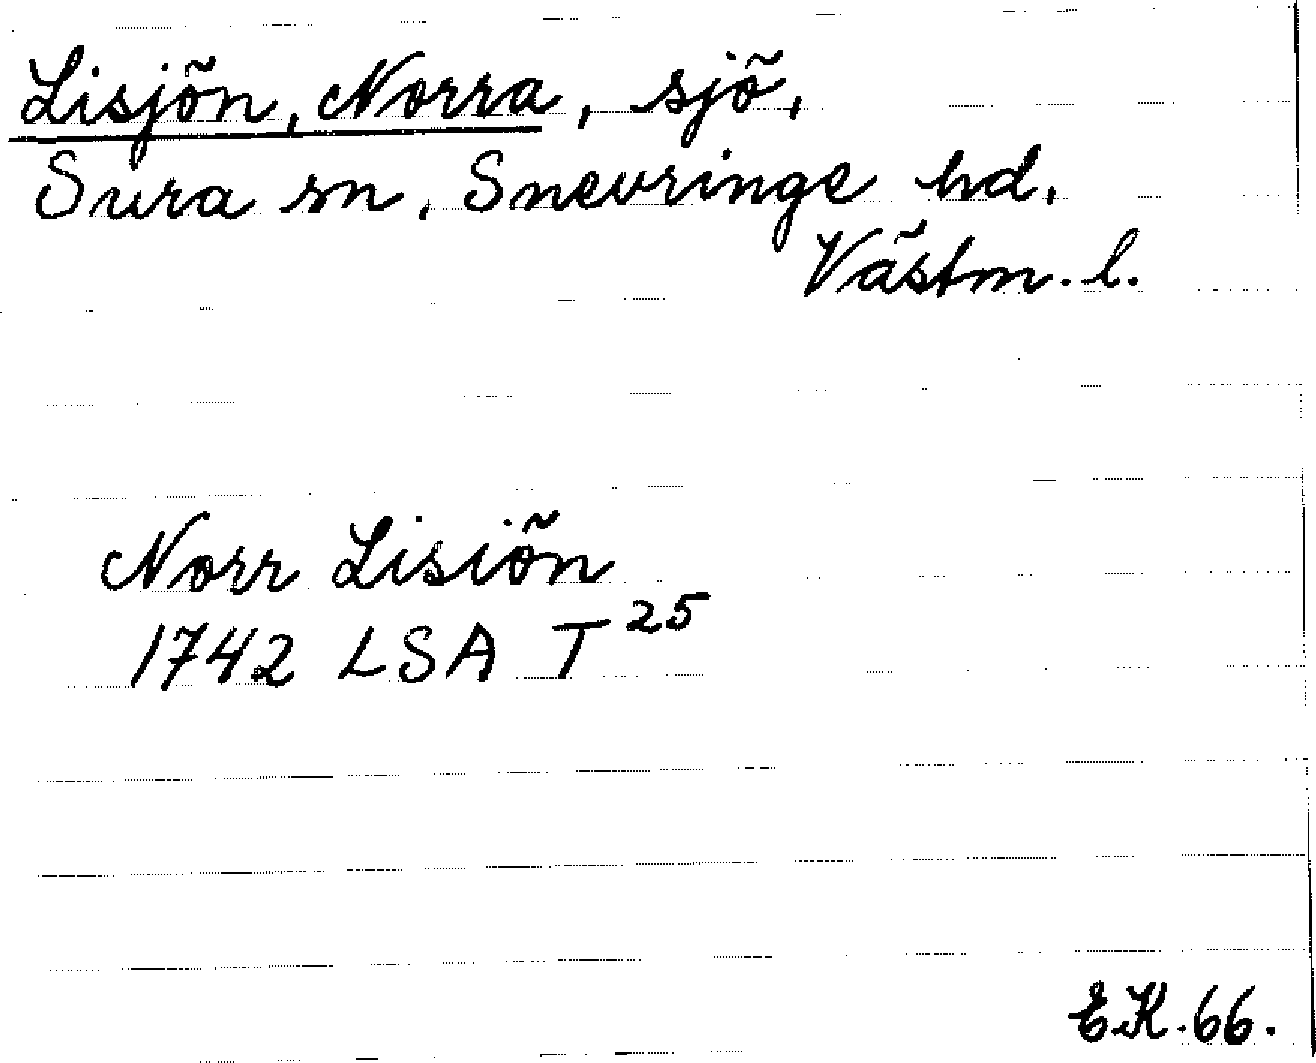 Lisjön, Norra, sjö,
Sura sn, Snevringe hd,
Västm. l.
Norr Lisiön
1742 LSA T 25
E.K. 66.